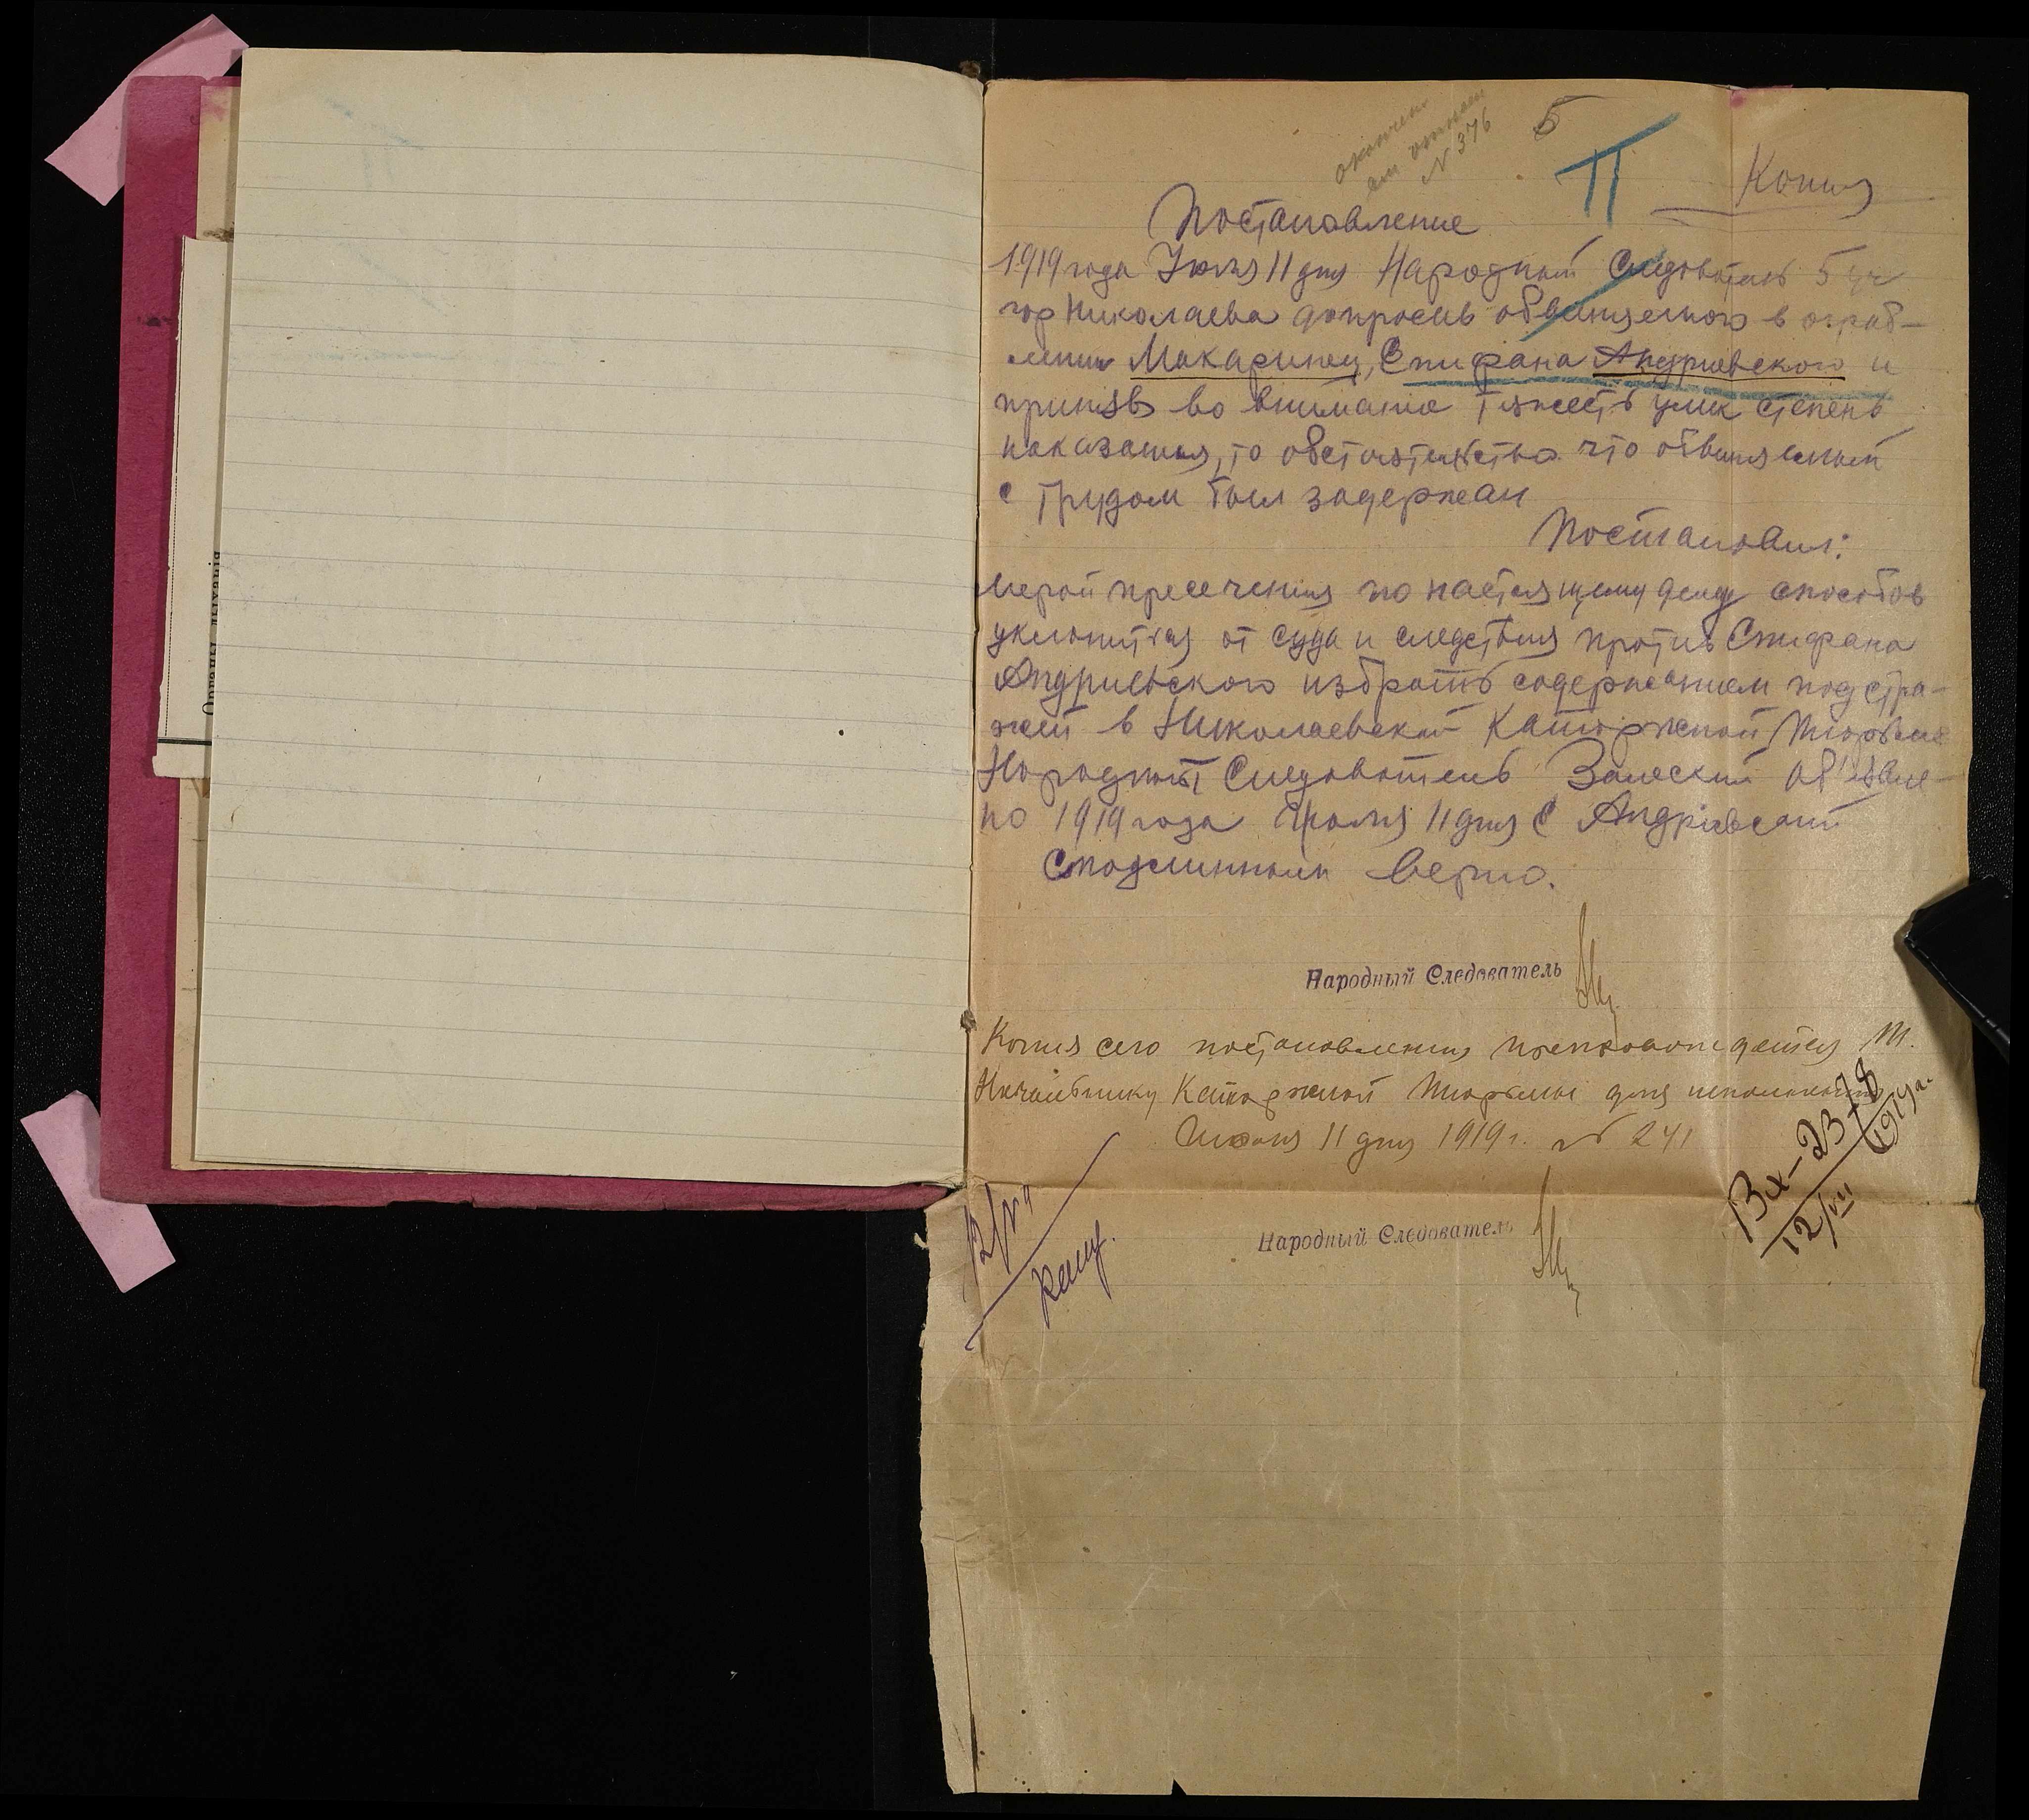 5
П
№ 376
Копия
Постановление
1919 года Июля 11 дня Народный Следователь 5 уч
гор Николаева допросив обвиняемого в ограб-
лении Макаринец, Епифана Андриевского и
приняв во внимание тяжесть улик степень
наказания, то обстоятельство что обвиняемый
с трудом был задержан
Постановил:
мерой пресечения по настоящему делу способов
уклонится от суда и следствия против Епифана
Андриевского избрать содержанием под стра-
жей в Николаевской Каторжной Тюрьме
Народный Следователь Залеский об'явле-
но 1919 года Июля 11 дня Е Андриевский
С подлинным верно.
Народный Следователь
Копия сего постановления препровождается Т.
Начальнику Каторжной Тюрьмы для исполнения
Июля 11 дня 1919 г. № 241
Вх-2378
12/VII 1919 г.
Народный Следователь